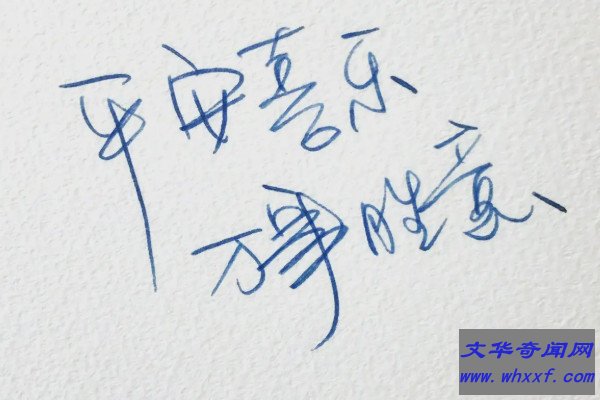 平安喜乐
万事胜意、
文华奇闻网
www.whxxf.com